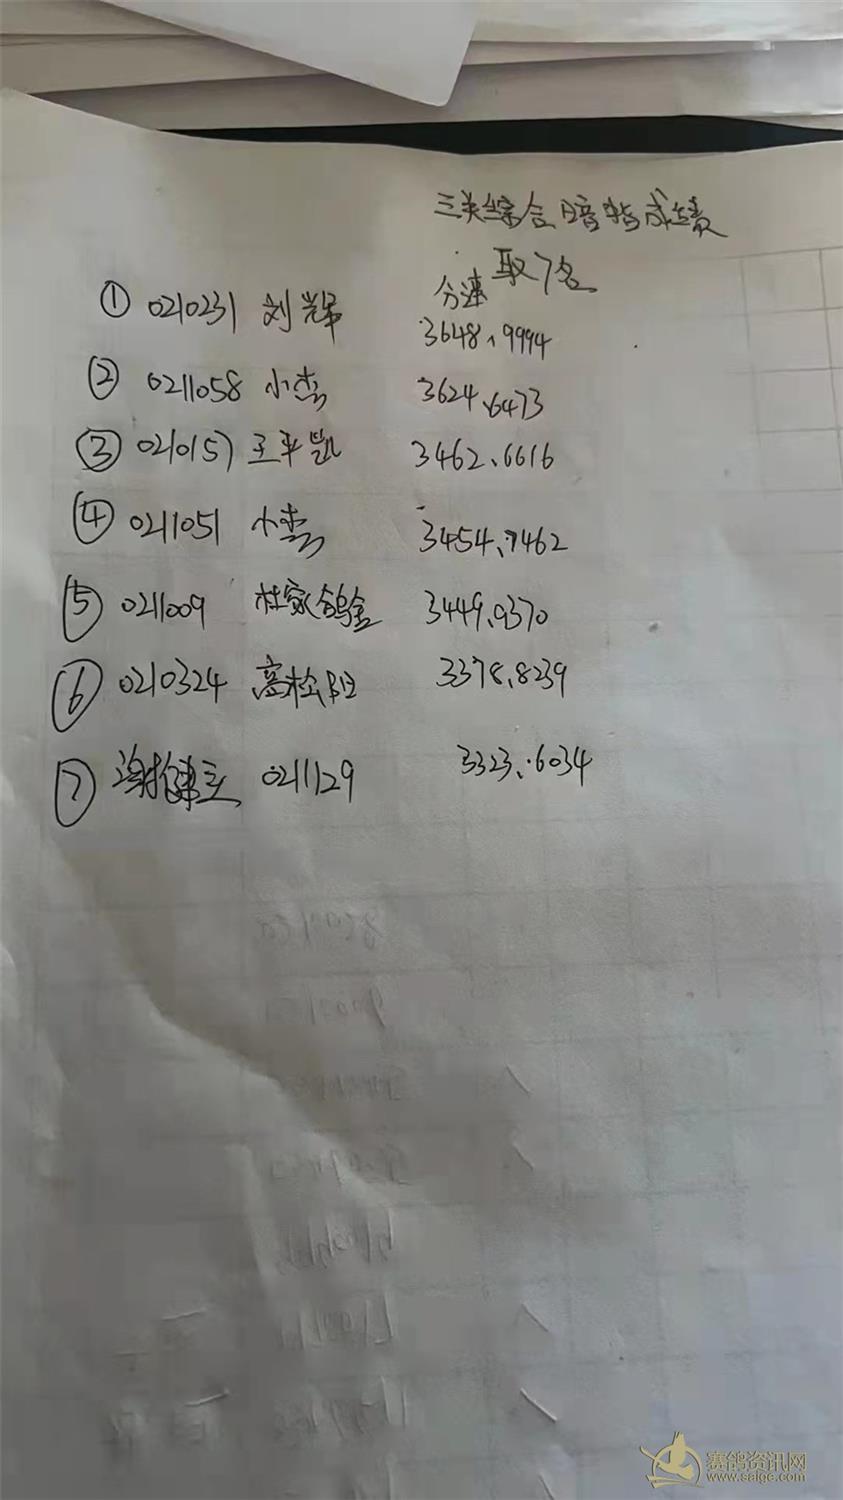 三关综合暗指成绩
取7名
分速
① 0210231 刘辉 3648、9994
② 0211058 小李 3624、6473
③ 0210157 王平凯 3462、6616
④ 0211051 小李 3454、7462
⑤ 0211009 杜家鸽舍 3449、9370
⑥ 0210324 高松阳 3378、8239
⑦ 谢健立 0211129 3323、6034
赛鸽资讯网
www.saige.com